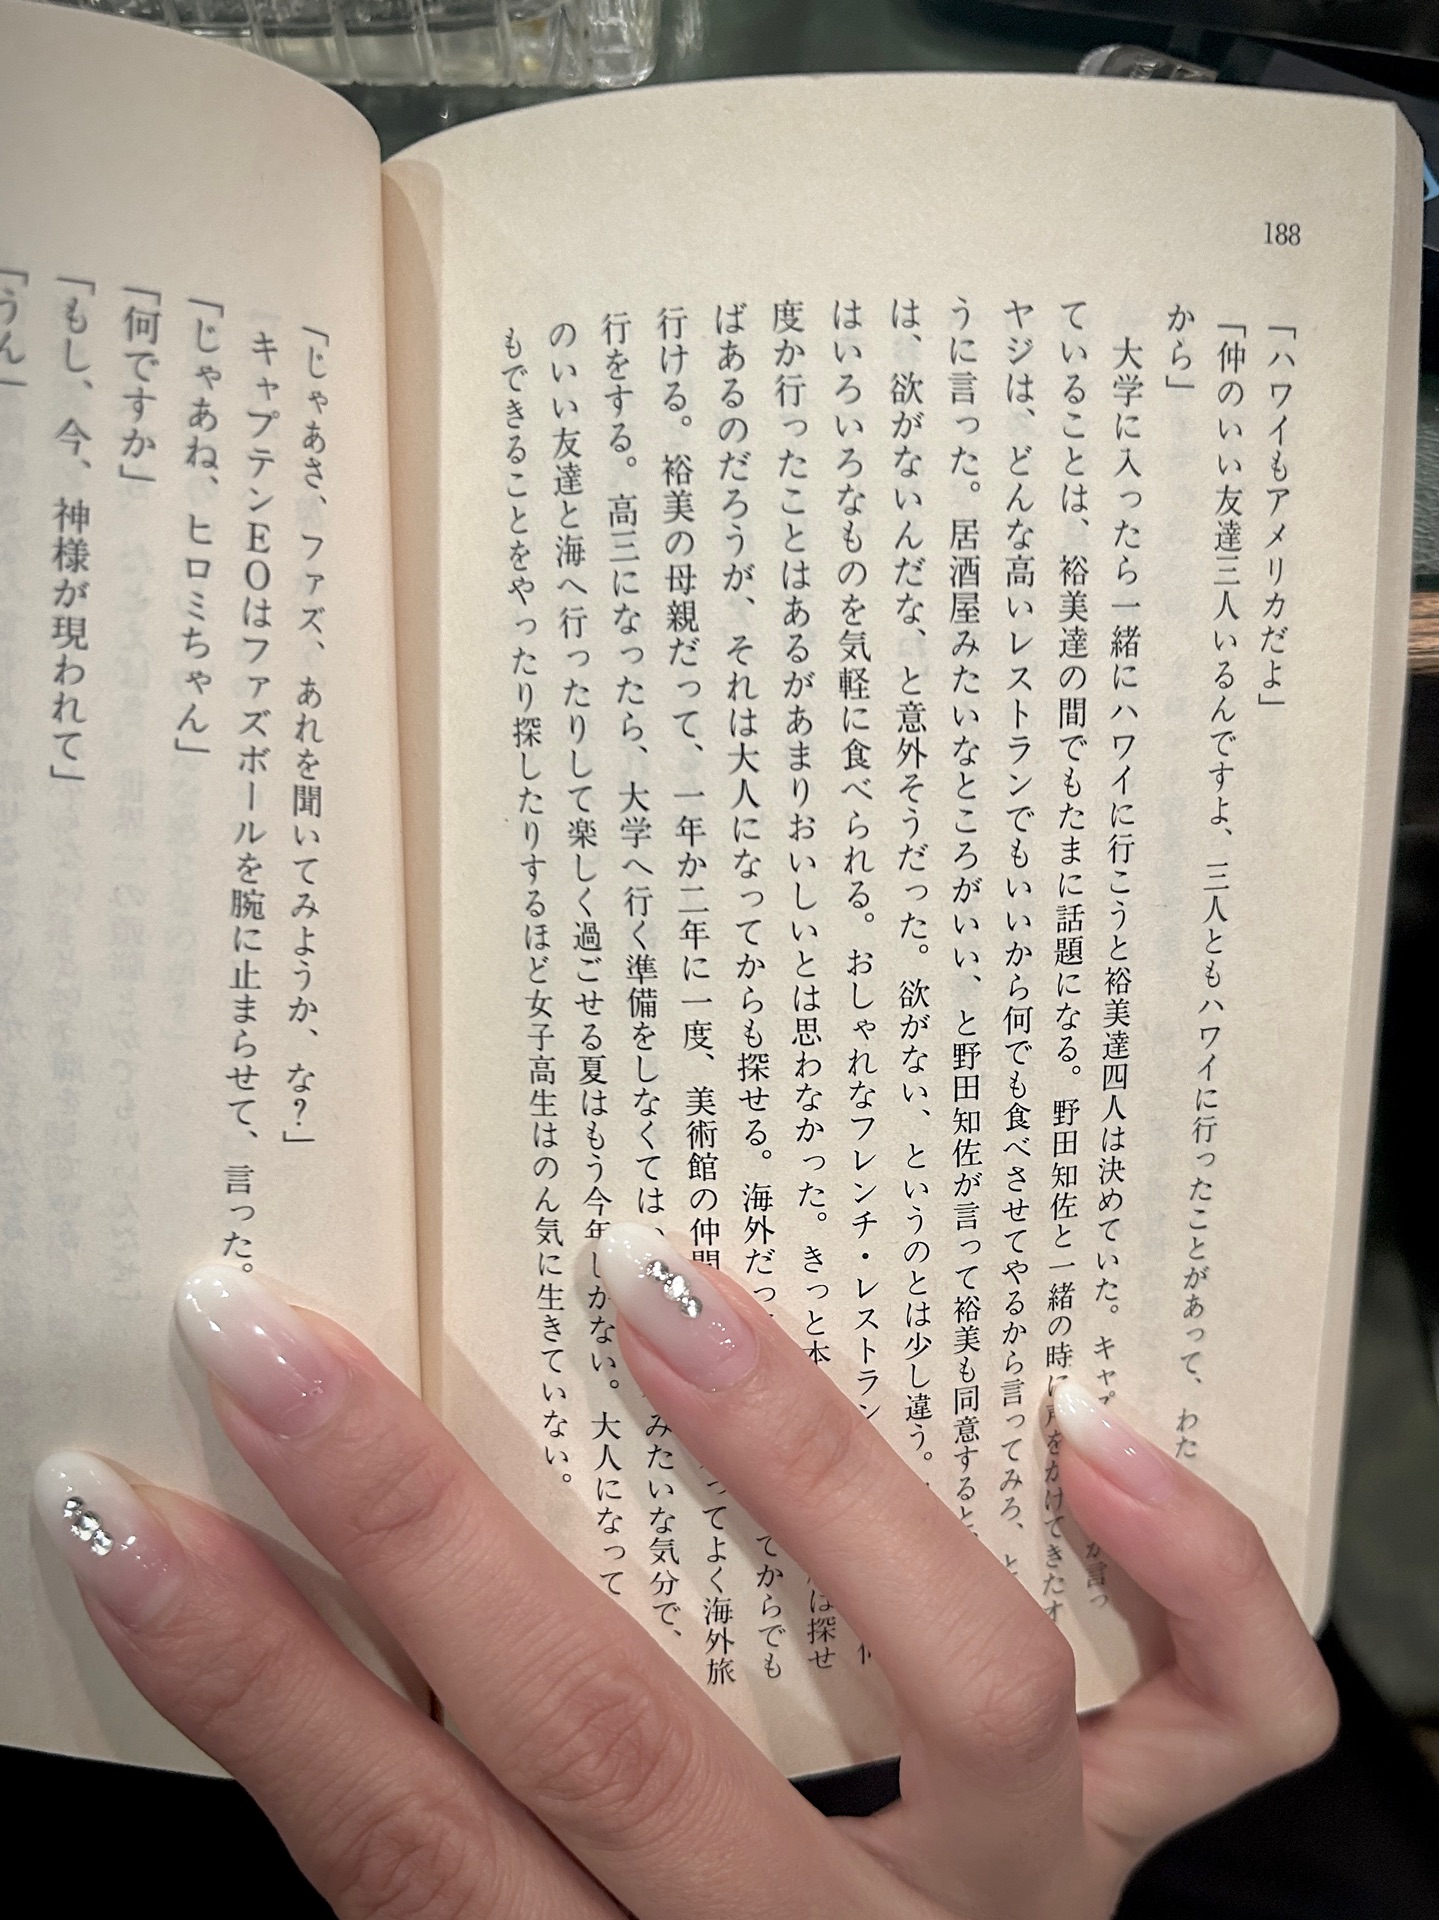 188
「ハワイもアメリカだよ」
「仲のいい友達三人いるんですよ、三人ともハワイに行ったことがあって、わた
から」
大学に入ったら一緒にハワイに行こうと裕美達四人は決めていた。キャプ が言っ
ていることは、裕美達の間でもたまに話題になる。野田知佐と一緒の時に声をかけてきたオ
ヤジは、どんな高いレストランでもいいから何でも食べさせてやるから言ってみろ、と
うに言った。居酒屋みたいなところがいい、と野田知佐が言って裕美も同意すると、
は、欲がないんだな、と意外そうだった。欲がない、というのとは少し違う。
はいろいろなものを気軽に食べられる。おしゃれなフレンチ・レストラン
度か行ったことはあるがあまりおいしいとは思わなかった。きっと本 は探せ
ばあるのだろうが、それは大人になってからも探せる。海外だっ てからでも
行ける。裕美の母親だって、一年か二年に一度、美術館の仲間 ってよく海外旅
行をする。高三になったら、大学へ行く準備をしなくては みたいな気分で、
のいい友達と海へ行ったりして楽しく過ごせる夏はもう今年しかない。大人になって
もできることをやったり探したりするほど女子高生はのん気に生きていない。
「じゃあさ、ファズ、あれを聞いてみようか、な？」
キャプテンEOはファズボールを腕に止まらせて、言った。
「じゃあね、ヒロミちゃん」
「何ですか」
「もし、今、神様が現われて」
「うん」